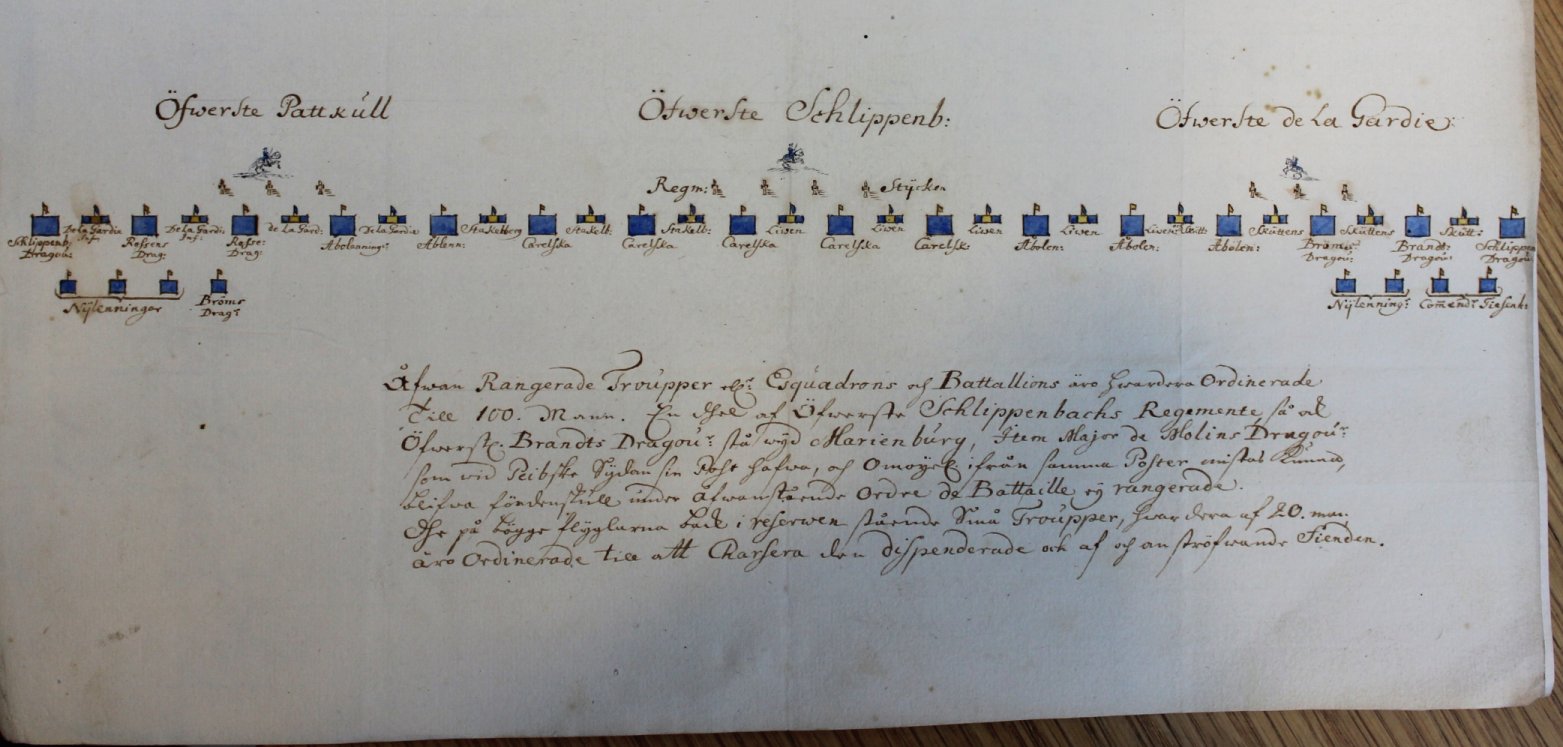 Öfwerste Pattkull Öfwerste Schlippenb: Öfwerste de La Gardie:
Regm: Stÿcken
Schlippenb: Dragou: De la Gardie Inf: Rossens Drag: De la Gardi: Inf: Rosse: Drag: de La Gard: Åbolänning: De la Gardie ÅbLenn: Stakelberg Carelska Stakelb: Carelska Stakelb: Carelska Liwen Carelska Liwen Carelsk: Liwen Åbolen: Liwen Åbolen: Liwen Skütt: Åbolen: Sküttens Bröms: Dragou: Sküttens Brandt: Dragou: Skütt: Schlippen Dragou:
Nÿlenningar Bröms Drag: Nÿlenning: Comend: Tiesenh:
Åfwan Rangerade Troupper ell: Esquadrons och Battallions äro hwardera Ordinerade
Till 100. Mann. En dhel af Öfwerste Schlippenbachs Regemente, så ock
Öfwerst. Brandts Dragou: stå wÿd Marienburg, Item Major de Molins Dragou:
som wid Peibske Sÿdan sin Post hafwa, och ifrån samma Poster mistas Kunna,
blifwa fördenskull under åfwanstående Ordre de Battaille eÿ rangerade.
Dhe på bögge flÿglarna bak i reserwen stående Små Troupper, hwardera af 20. man
äro Ordinerade till att Charsera den dispenderade och af och an ströfwande Fienden.